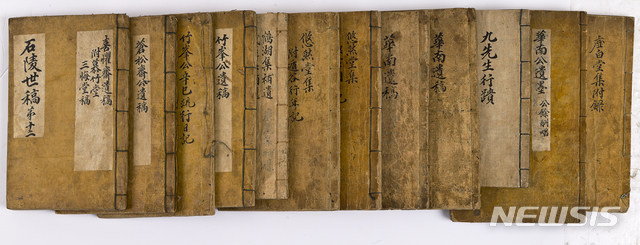 石陵世稿 第十二
喜懼齋遺稿
附慕竹堂
三悔堂稿
蒼松齋公遺稿
竹峯公辛巳疏行日記
竹峯公遺稿
湖集補遺
悠然堂集
附道谷行年記
悠然堂集
華南遺稿
華南遺稿
九先生行蹟
華南公遺墨
公餘酬唱
虛白堂集附錄
NEWSIS